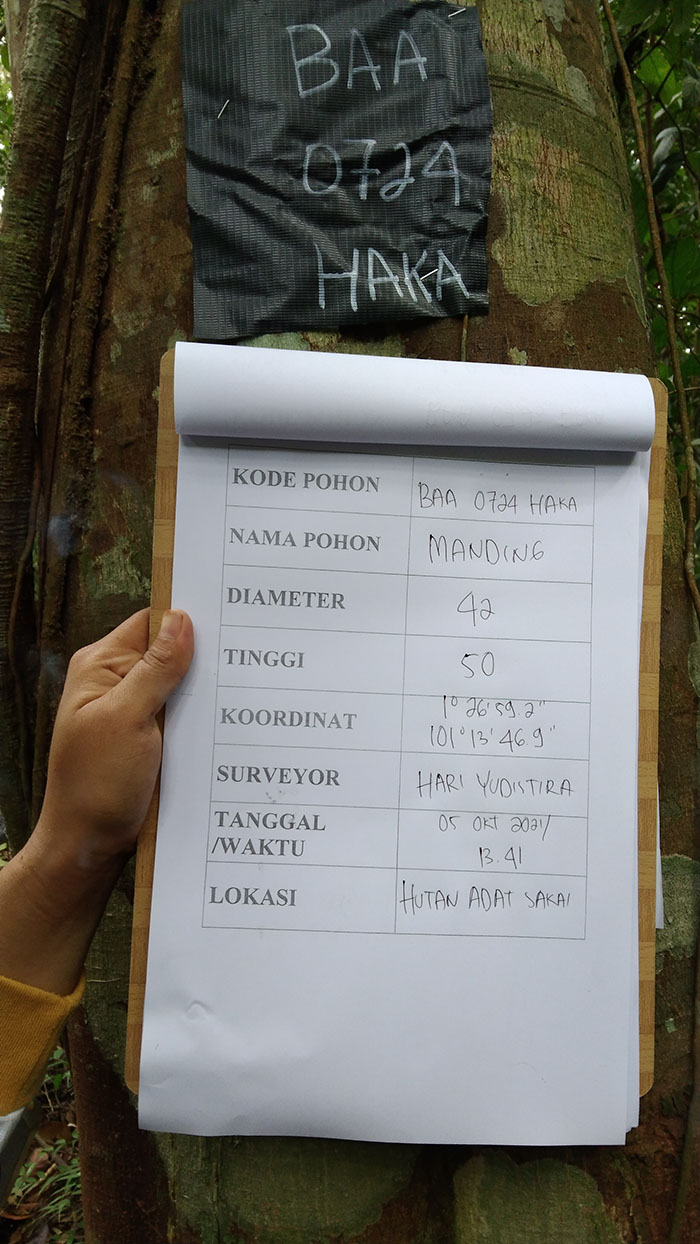 BAA
0724
HAKA
KODE POHON BAA 0724 HAKA
NAMA POHON MANDING
DIAMETER 42
TINGGI 50
KOORDINAT 1° 26' 59.2"
101° 13' 46.9"
SURVEYOR HARI YUDISTIRA
TANGGAL 05 OKT 2021/
/WAKTU 13.41
LOKASI HUTAN ADAT SAKAI